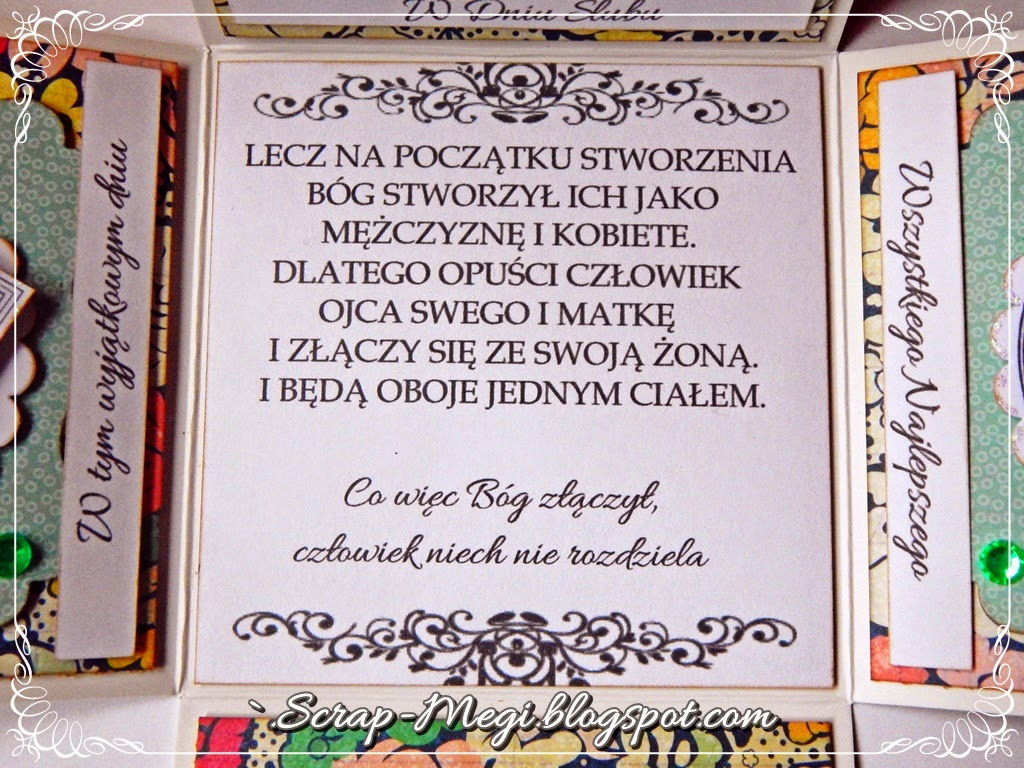 W Dniu Ślubu
W tym wyjątkowym dniu
LECZ NA POCZĄTKU STWORZENIA
BÓG STWORZYŁ ICH JAKO
MĘŻCZYZNĘ I KOBIETE.
DLATEGO OPUŚCI CZŁOWIEK
OJCA SWEGO I MATKĘ
I ZŁĄCZY SIĘ ZE SWOJĄ ŻONĄ.
I BĘDĄ OBOJE JEDNYM CIAŁEM.
Co więc Bóg złączył,
człowiek niech nie rozdziela
Wszystkiego Najlepszego
`.Scrap-Megi.blogspot.com